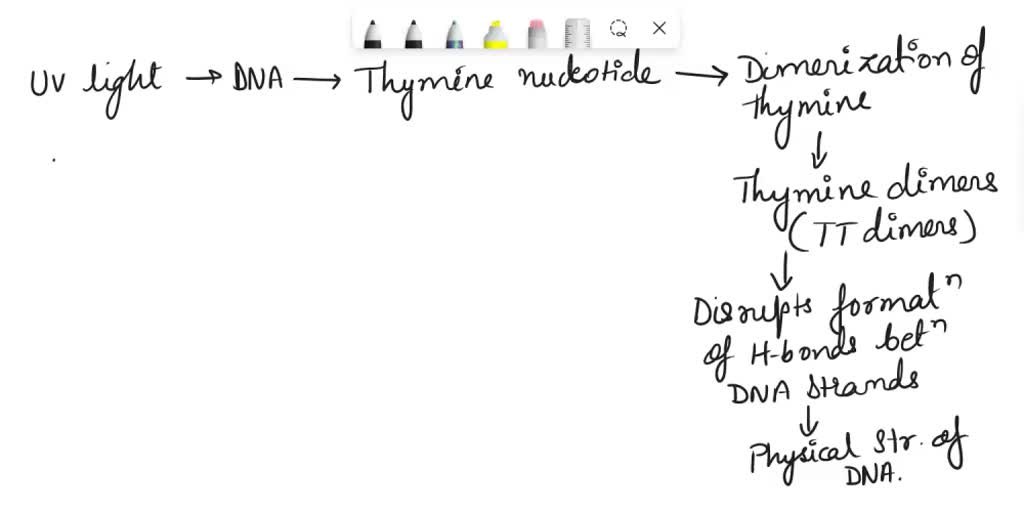 UV light → DNA → Thymine nucleotide → Dimerization of
thymine
↓
Thymine dimers
(TT dimers)
↓
Disrupts formatⁿ
of H-bonds betⁿ
DNA strands
↓
Physical Str. of
DNA.